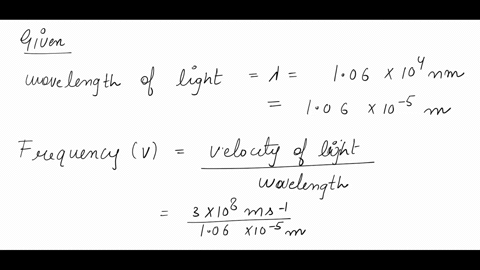 Given
wavelength of light = λ = 1.06 × 10⁴ nm
= 1.06 × 10⁻⁵ m
Frequency (ν) = velocity of light / wavelength
= 3 × 10⁸ ms⁻¹ / 1.06 × 10⁻⁵ m